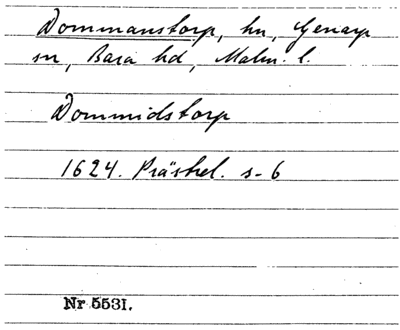 Dommanstorp, hn, Genarp
sn, Bara hd, Malm. l.
Dommidstorp
1624. Prästrel. s. 6
Nr 5531.